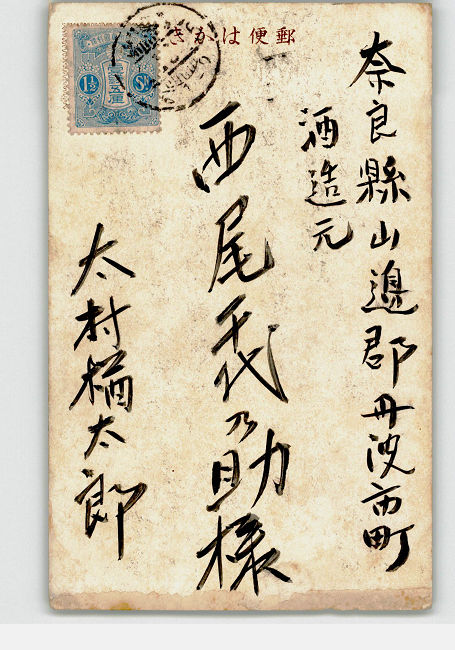 郵便はがき
奈良縣山邊郡丹波市町
酒造元
西尾千代乃助様
太村楢太郎
1½ Sn